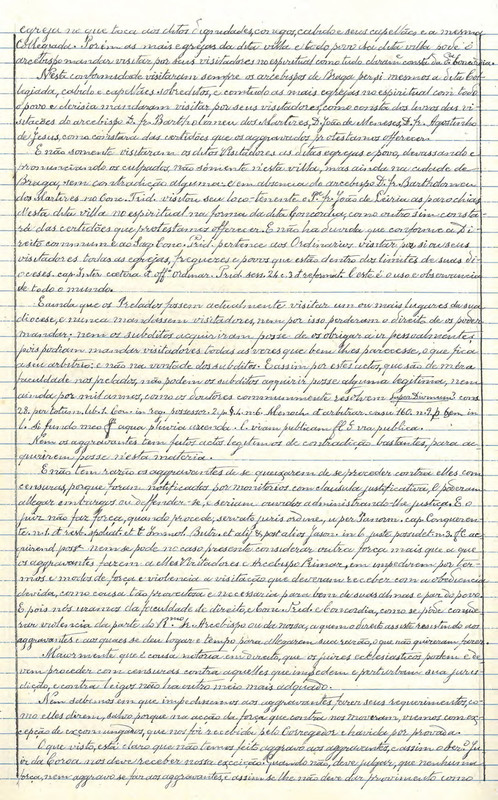 egreja no que toca aos ditos Dignidades, conegos, cabido e seus capellães e a mesma
Alterada. Porém as mais egrejas da dita villa e todo povo da dita villa pode o
arcebispo mandar visitar por seus visitadores no espiritual como tudo
Nesta conformidade visitaram sempre os arcebispos de Braga per si mesmos a dita Col-
legiada, cabido e capellães sobreditos, e comtudo as mais egrejas no espiritual com todo
o povo e clerisia mandaram visitar por seus visitadores, como consta dos livros das vi-
sitações do arcebispo D. fr. Bartholomeu dos Martyres, D. João de Menezes, D. fr. Agostinho
de Jesus, como constará das certidões que os aggravados protestamos offerecer.
E não somente visitaram os ditos Visitadores as ditas egrejas e povo, devassando e
pronunciando os culpados, não sómente nesta villa, mas ainda na cidade de
Braga, sem contradição alguma e em absencia do arcebispo D. fr. Bartholomeu
dos Martyres no Conc. Trid. visitou seu loco-tenente o P.e fr. João de Leiria as parochias
desta villa no espiritual na forma da dita Concordia, como outro sim consta-
rá das certidões que protestamos offerecer. E não ha duvida que conforme a Di-
reito commum e ao Sag. Conc. Trid. pertence aos Ordinarios visitar por si ou seus
visitadores todas as egrejas, freguezes e povos que estão dentro dos limites de suas di-
oceses. cap. Inter cætera de offº ordinar. Trid. sess. 24 c. 3 de reformat. E este é o uso e observancia
de todo o mundo.
E ainda que os Prelados fossem actualmente visitar um ou mais lugares de sua
diocese, e nunca mandassem visitadores, nem por isso perderam o direito de os poder
mandar; nem os subditos acquiriram posse de os obrigar a ir pessoalmente;
pois podiam mandar visitadores todas as vezes que bem lhes parecesse, o que fica
a seu arbitrio e não na vontade dos subditos. E assim por estes actos, que são de méra
faculdade nos prelados, não podem os subditos acquirir posse alguma legitima, nem
ainda por mil annos, como os doutores communmente resolvem
28. per totum, lib. 1. Menoch. de arbitrar. casu 160. n. 9.
l. si fundo meo ff. aqua pluvia arcenda. l. viam publicam ff. de via publica.
Nem os aggravantes tem feito actos legitimos de contradição bastantes, para ac-
quirirem posse nesta materia.
E não tem razão os aggravantes de se queixarem de se proceder contra elles com
censuras, porque foram notificados por monitorios com clausula justificativa, e poderam
allegar embargos ou deffender-se, e seriam ouvidos administrando-lha justiça. E o
juiz não faz força, quando procede, servato juris ordine, ut per Panorm. cap. Conqueren-
te n. 1. de rest. spoliat. et
quirend. poss. nem se pode no caso presente considerar outra força mais que a que
os aggravantes fazem a elles Visitadores e Arcebispo Primaz, em impedirem por ter-
mos e modos de força e violencia a visitação que deveram receber com a obediencia
devida, como cousa tão proveitosa e necessaria para bem de suas almas e paz do povo.
E pois nós usamos da faculdade de direito, Conc. Trid. e Concordia, como se póde consid-
rar violencia da parte do R.mo Sr. Arcebispo ou da nossa, a quem o direito assiste resistindo aos
aggravantes e aos quaes se deu logar e tempo para allegarem sua rasão, o que não quizeram fazer.
Maiormente que é cousa notoria em direito, que os juizes ecclesiasticos podem e de-
vem proceder com censuras contra aquelles que impedem e perturbam sua juris-
dicção, e contra leigos não ha outro meio mais adequado.
Nem sabemos em que impedissemos aos aggravantes fazer seus requerimentos, co-
mo elles dizem, salvo porque na acção da força que contra nós moveram, viemos com ex-
cepção de excommungados, que nos foi recebida pelo Corregedor e havida por provada.
O que visto, está claro que não temos feito aggravo aos aggravantes, e assim o ber. Ju-
iz da Coroa nos deve receber nossa exceição. Quando não, deve julgar, que nenhuma
força, nem aggravo se faz aos aggravantes, e assim se lhe não deve dar provimento como